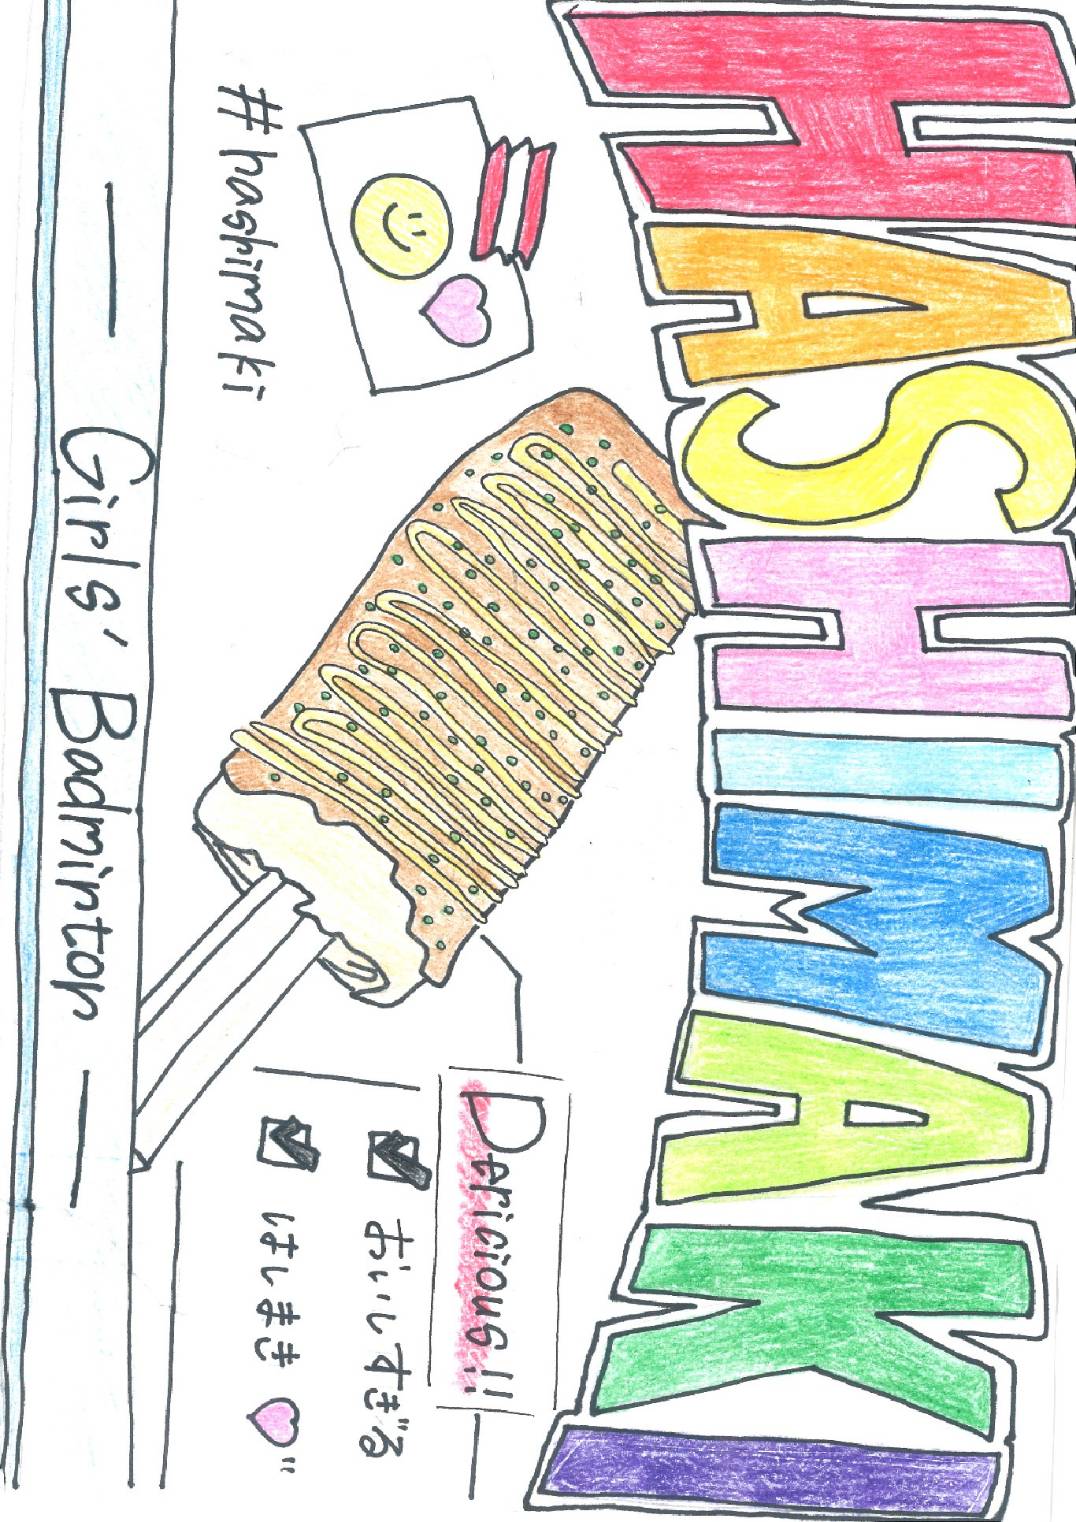 HASHIMAKI
#hashimaki
Dericious!!
おいしすぎる
はしまき
Girls' Badminton